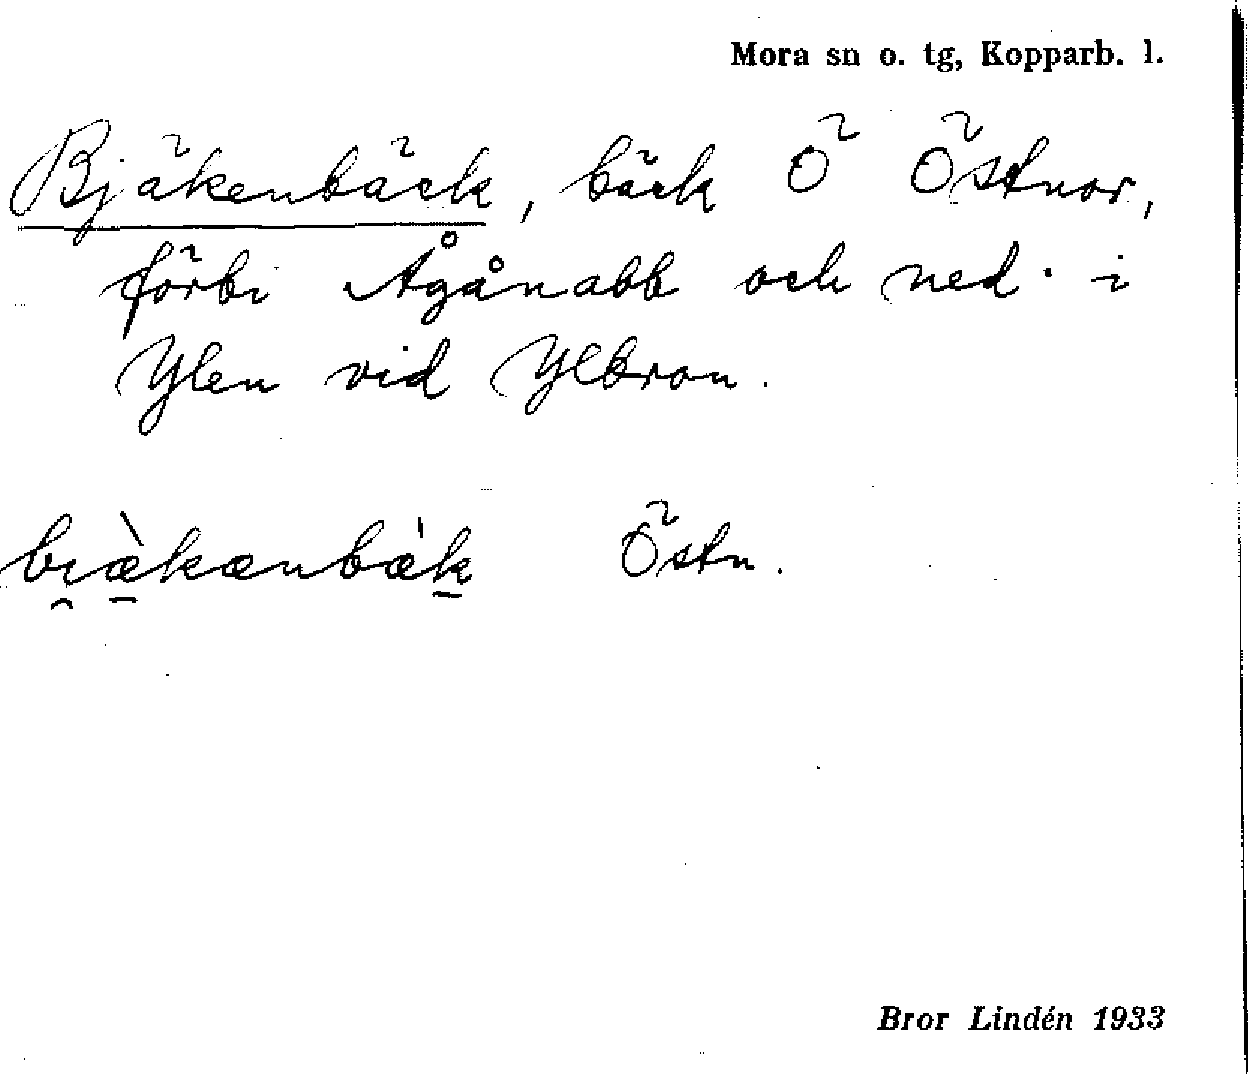 Mora sn o. tg, Kopparb. l.
Bjäkenbäck, bäck Ö Östnor,
förbi Ågånabb och ned i
Ylen vid Ylbron.
bi̯æ̠̀kænbæ̍k̠ Östn.
Bror Lindén 1933